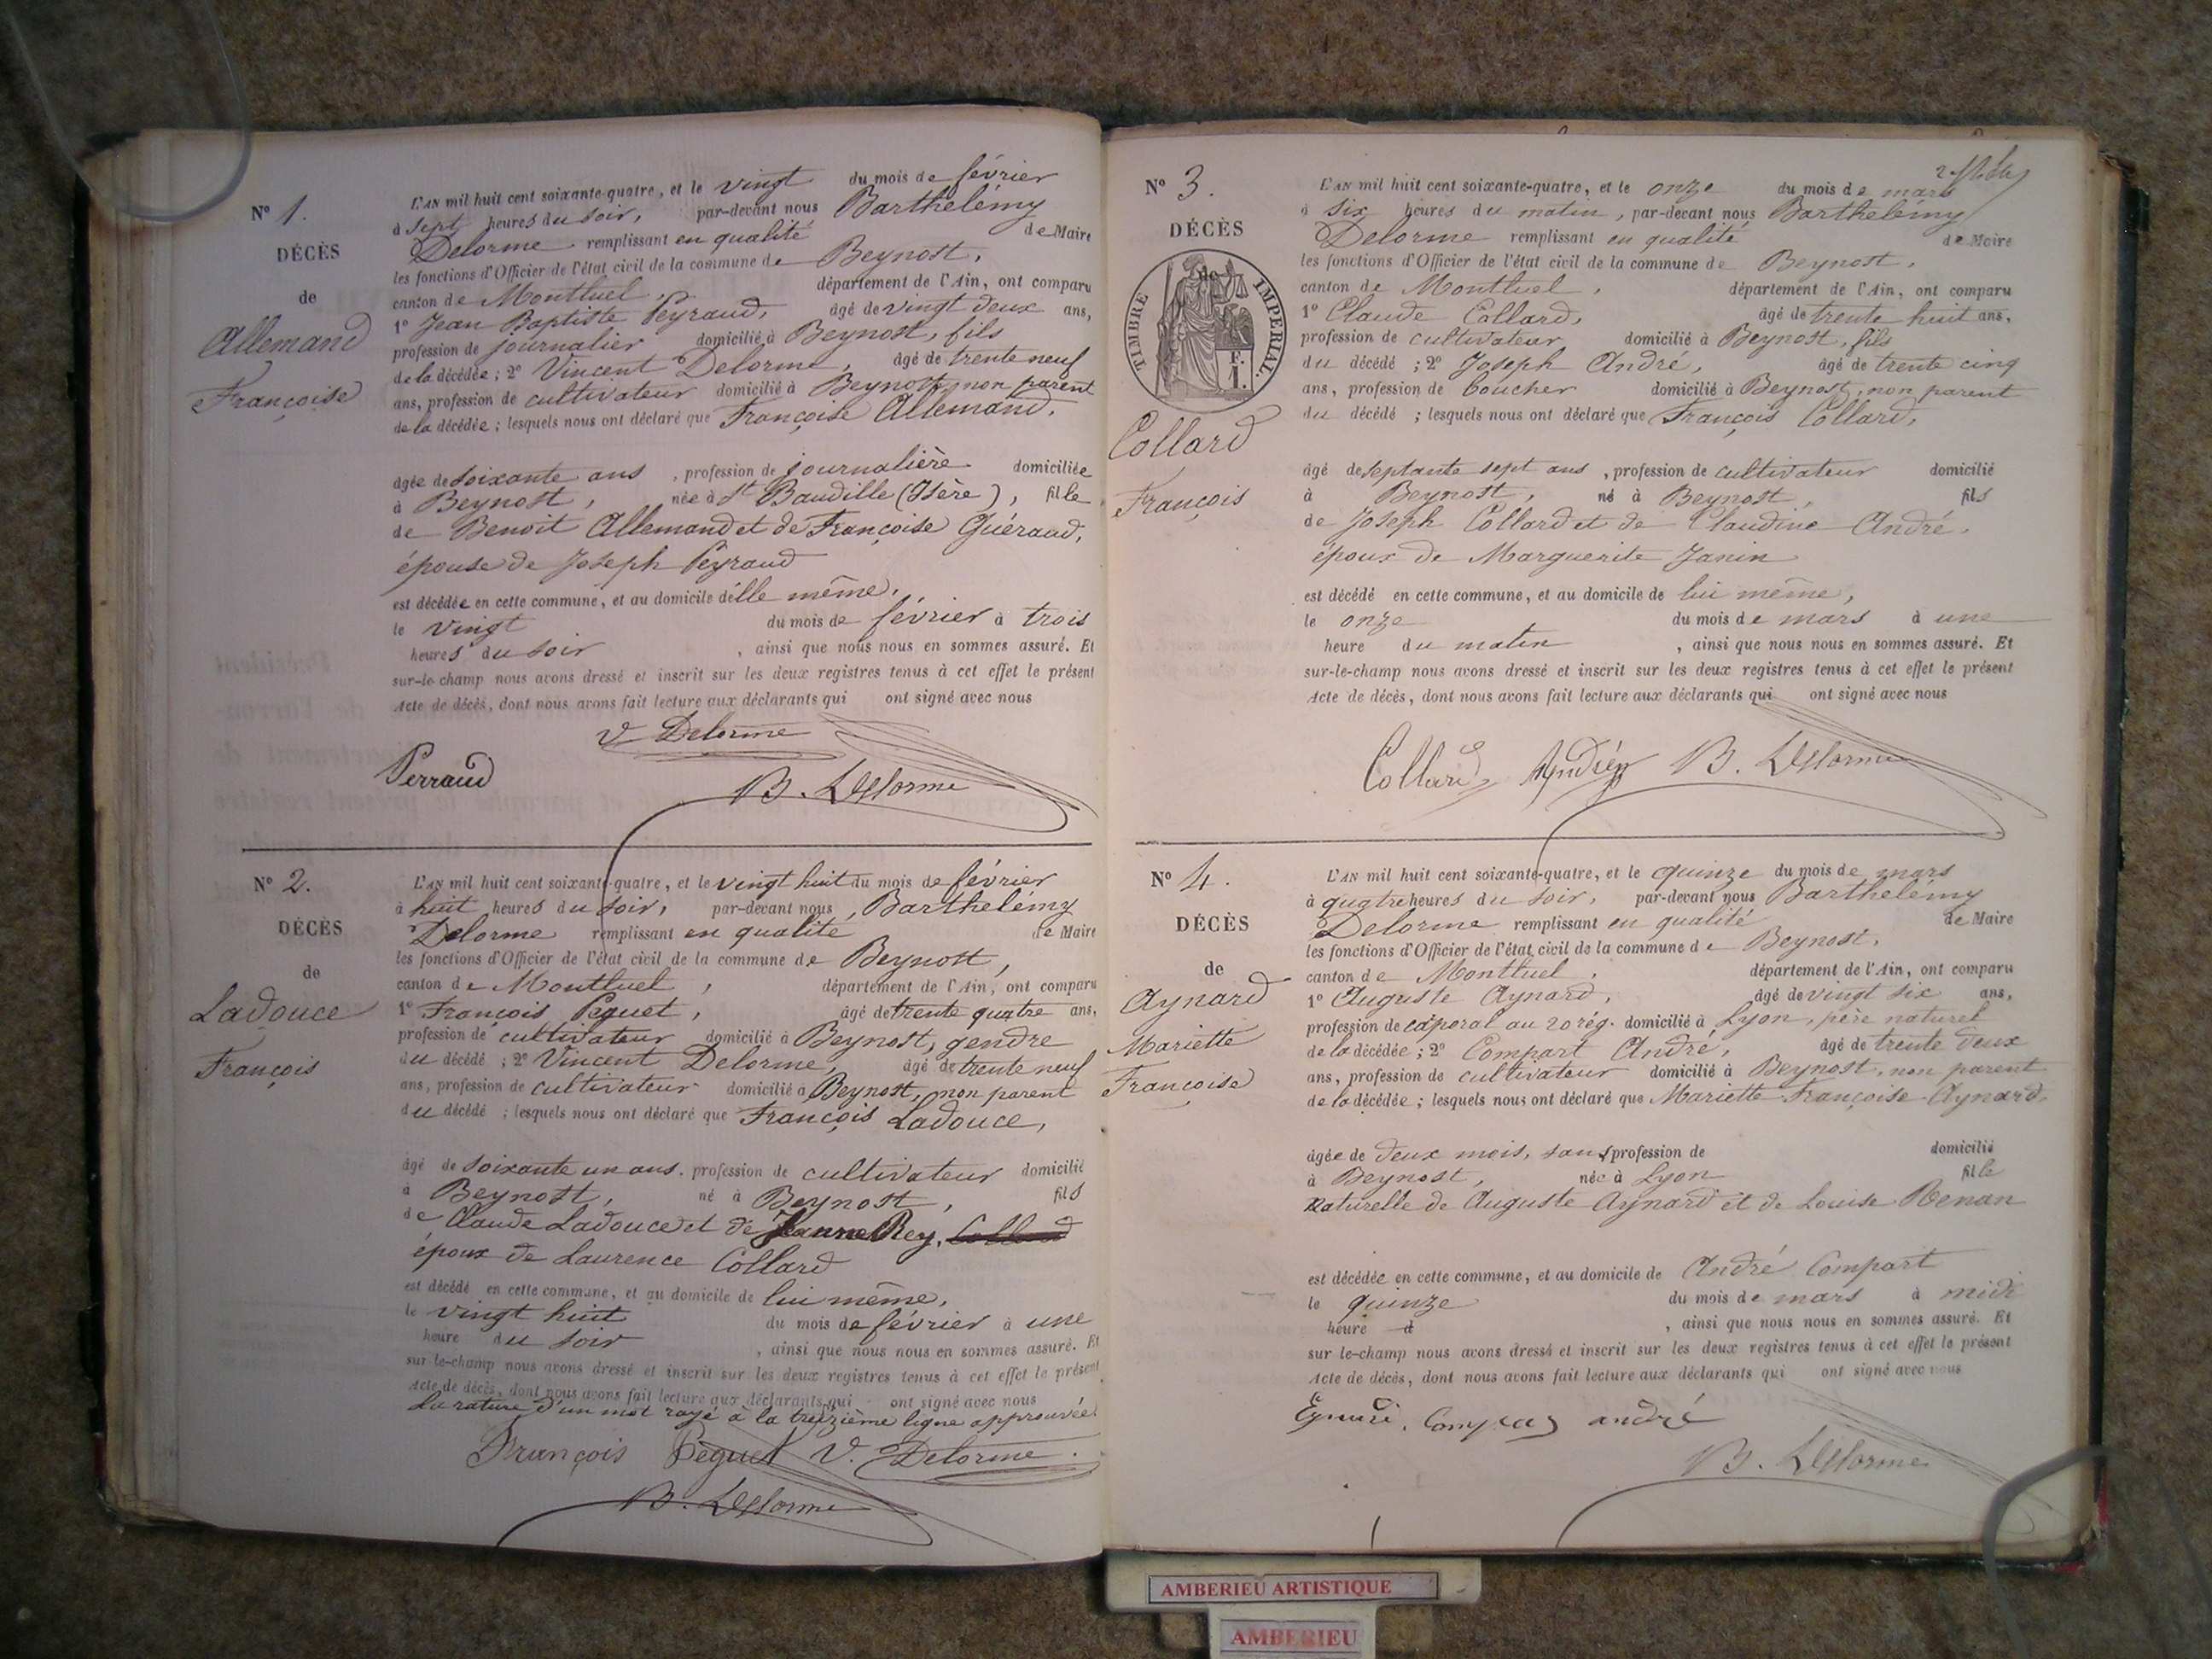 N° 1.
DÉCÈS
de
Allemand
Françoise
L'AN mil huit cent soixante-quatre, et le vingt du mois de février
à sept heures du soir, par-devant nous Barthelémy
Delorme remplissant en qualité de Maire
les fonctions d'Officier de l'état civil de la commune de Beynost,
canton de Montluel, département de l'Ain, ont comparu
1° Jean Baptiste Peyraud, âgé de vingt deux ans,
profession de journalier domicilié à Beynost, fils
de la décédée ; 2° Vincent Delorme, âgé de trente neuf
ans, profession de cultivateur domicilié à Beynost, non parent
de la décédée ; lesquels nous ont déclaré que Françoise Allemand,
âgée de soixante ans, profession de journalière domiciliée
à Beynost, née à St Baudille (Isère), fille
de Benoit Allemand et de Françoise Guéraud,
épouse de Joseph Peyraud
est décédée en cette commune, et au domicile d'elle même,
le vingt du mois de février à trois
heures du soir, ainsi que nous nous en sommes assuré. Et
sur-le-champ nous avons dressé et inscrit sur les deux registres tenus à cet effet le présent
Acte de décès, dont nous avons fait lecture aux déclarants qui ont signé avec nous
V Delorme
Perraud
B. Delorme
N° 2.
DÉCÈS
de
Ladouce
François
L'AN mil huit cent soixante-quatre, et le vingt huit du mois de février
à huit heures du soir, par-devant nous Barthelémy
Delorme remplissant en qualité de Maire
les fonctions d'Officier de l'état civil de la commune de Beynost,
canton de Montluel, département de l'Ain, ont comparu
1° François Peguet, âgé de trente quatre ans,
profession de cultivateur domicilié à Beynost, gendre
du décédé ; 2° Vincent Delorme, âgé de trente neuf
ans, profession de cultivateur domicilié à Beynost, non parent
du décédé ; lesquels nous ont déclaré que François Ladouce,
âgé de soixante un ans. profession de cultivateur domicilié
à Beynost, né à Beynost, fils
de Claude Ladouce et de Jeanne Rey, Collard
époux de Laurence Collard
est décédé en cette commune, et au domicile de lui même,
le vingt huit du mois de février à une
heure du soir, ainsi que nous nous en sommes assuré. Et
sur-le-champ nous avons dressé et inscrit sur les deux registres tenus à cet effet le présent
Acte de décès, dont nous avons fait lecture aux déclarants qui ont signé avec nous
La rature d'un mot rayé à la treizième ligne approuvée.
François Péguet V. Delorme
B. Delorme
N° 3.
DÉCÈS
de
TIMBRE IMPERIAL.
F.
1.
Collard
François
L'AN mil huit cent soixante-quatre, et le onze du mois de mars
à six heures du matin, par-devant nous Barthelémy
Delorme remplissant en qualité de Maire
les fonctions d'Officier de l'état civil de la commune de Beynost,
canton de Montluel, département de l'Ain, ont comparu
1° Claude Collard, âgé de trente huit ans,
profession de cultivateur domicilié à Beynost, fils
du décédé ; 2° Joseph André, âgé de trente cinq
ans, profession de boucher domicilié à Beynost, non parent
du décédé ; lesquels nous ont déclaré que François Collard,
âgé de septante sept ans, profession de cultivateur domicilié
à Beynost, né à Beynost, fils
de Joseph Collard et de Claudine André,
époux de Marguerite Janin
est décédé en cette commune, et au domicile de lui même,
le onze du mois de mars à une
heure du matin, ainsi que nous nous en sommes assuré. Et
sur-le-champ nous avons dressé et inscrit sur les deux registres tenus à cet effet le présent
Acte de décès, dont nous avons fait lecture aux déclarants qui ont signé avec nous
Collard André B. Delorme
N° 4.
DÉCÈS
de
Aynard
Mariette
Françoise
L'AN mil huit cent soixante-quatre, et le quinze du mois de mars
à quatre heures du soir, par-devant nous Barthelémy
Delorme remplissant en qualité de Maire
les fonctions d'Officier de l'état civil de la commune de Beynost,
canton de Montluel, département de l'Ain, ont comparu
1° Auguste Aynard, âgé de vingt six ans,
profession de caporal au 20 rég. domicilié à Lyon, père naturel
de la décédée ; 2° Compart André, âgé de trente deux
ans, profession de cultivateur domicilié à Beynost, non parent
de la décédée ; lesquels nous ont déclaré que Mariette Françoise Aynard,
âgée de deux mois, sans profession de domicilié
à Beynost, née à Lyon fille
naturelle de Auguste Aynard et de Louise Renan
est décédée en cette commune, et au domicile de André Compart
le quinze du mois de mars à midi
heure d, ainsi que nous nous en sommes assuré. Et
sur-le-champ nous avons dressé et inscrit sur les deux registres tenus à cet effet le présent
Acte de décès, dont nous avons fait lecture aux déclarants qui ont signé avec nous
andré
B. Delorme
AMBERIEU ARTISTIQUE
AMBERIEU